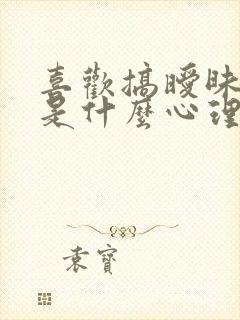 喜歡搞曖昧
是什麼心理
袁寶